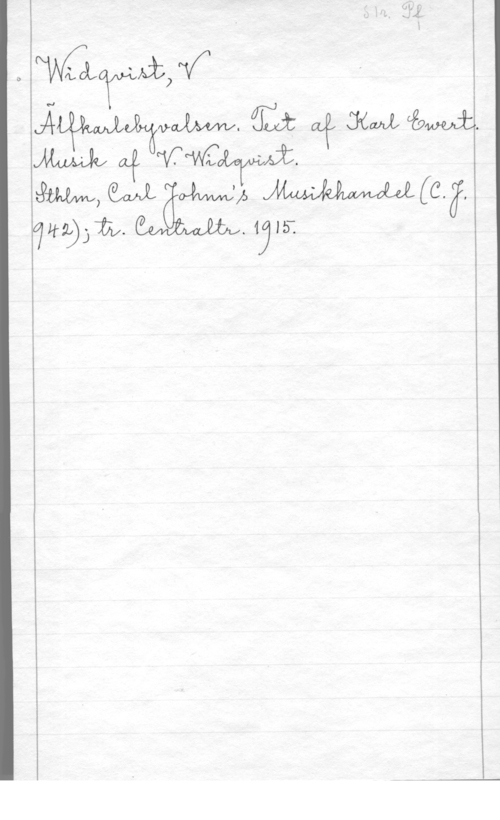 Sln. Pf
Widqvist, V
Älfkarlebyvalsen. Text af Karl Ewert.
Musik af V. Widqvist.
Sthlm, Carl Johnn's Musikhandel (C. J.
942); tr. Centraltr. 1915.